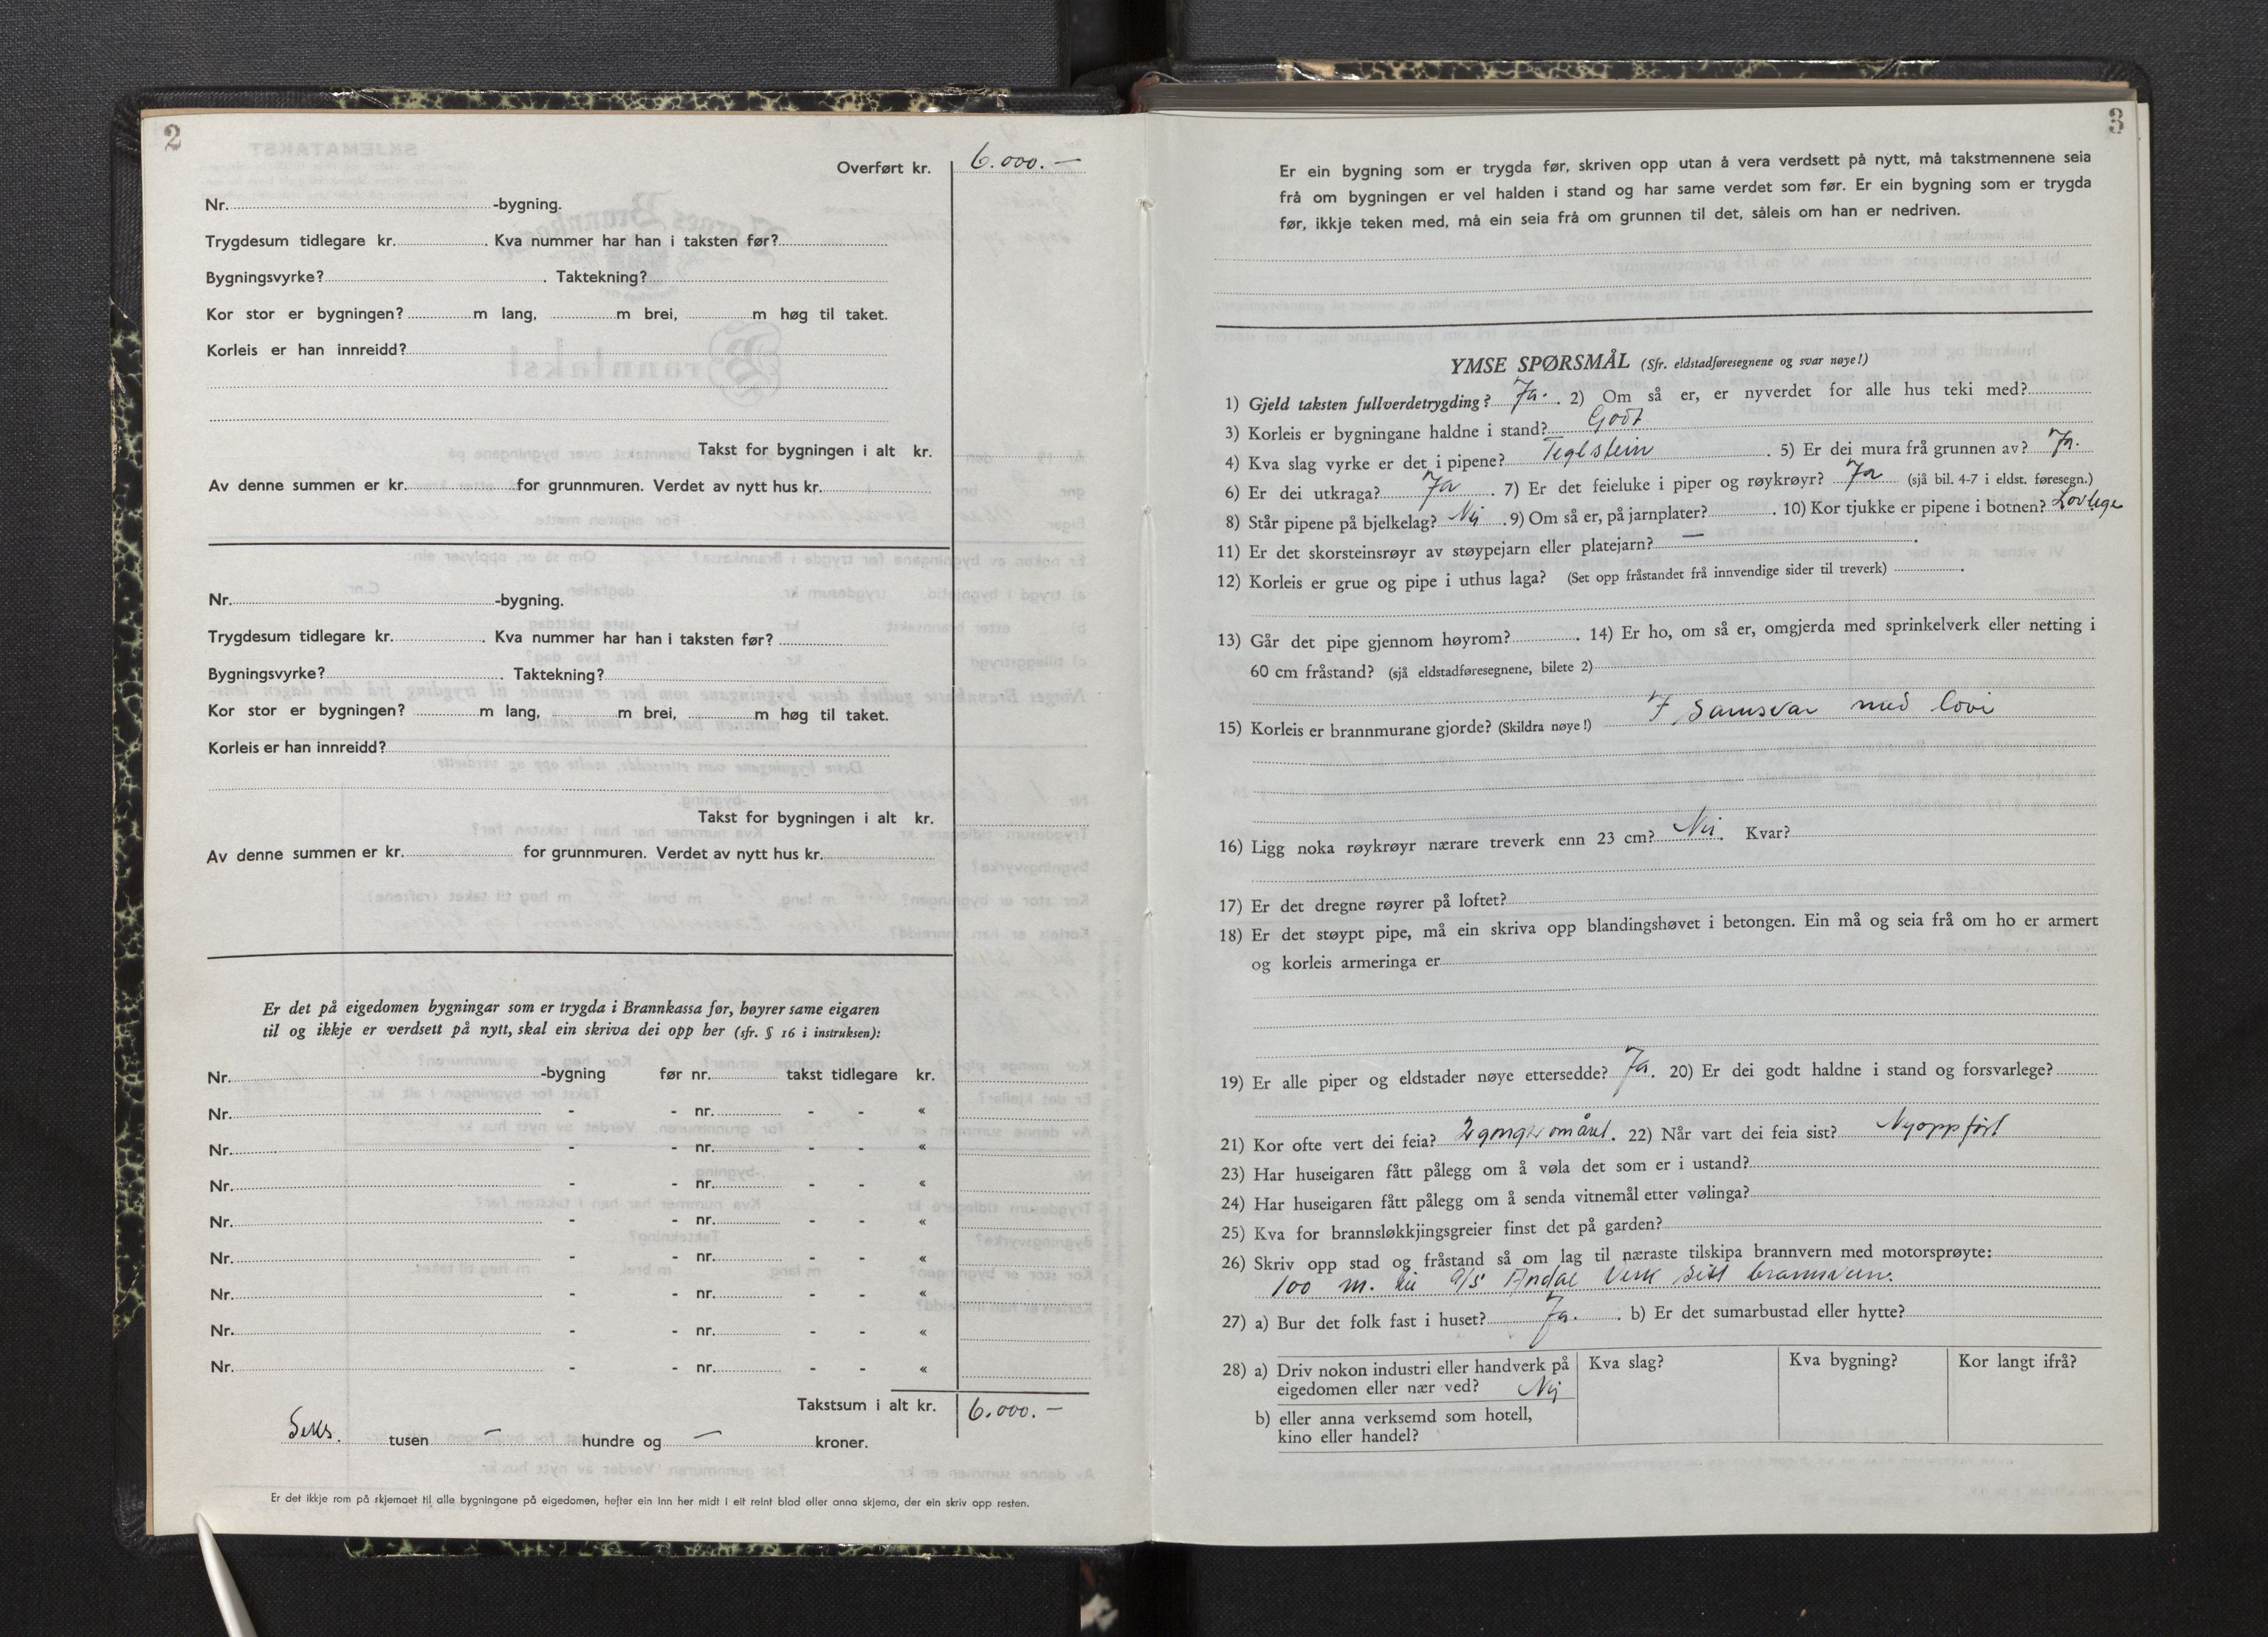 2
Overført kr. 6.000.—
Nr. -bygning.
Trygdesum tidlegare kr. . Kva nummer har han i taksten før?
Bygningsvyrke? . Taktekning?
Kor stor er bygningen? m lang, m brei, m høg til taket.
Korleis er han innreidd?
Takst for bygningen i alt kr.
Av denne summen er kr. for grunnmuren. Verdet av nytt hus kr.
Nr. -bygning.
Trygdesum tidlegare kr. . Kva nummer har han i taksten før?
Bygningsvyrke? . Taktekning?
Kor stor er bygningen? m lang, m brei, m høg til taket.
Korleis er han innreidd?
Takst for bygningen i alt kr.
Av denne summen er kr. for grunnmuren. Verdet av nytt hus kr.
Er det på eigedomen bygningar som er trygda i Brannkassa før, høyrer same eigaren
til og ikkje er verdsett på nytt, skal ein skriva dei opp her (sfr. § 16 i instruksen):
Nr. -bygning før nr. takst tidlegare kr.
Nr. - - nr. - - «
Nr. - - nr. - - «
Nr. - - nr. - - «
Nr. - - nr. - - «
Nr. - - nr. - - «
Nr. - - nr. - - «
Nr. - - nr. - - «
Nr. - - nr. - - «
Takstsum i alt kr. 6.000.—
Seks. tusen — hundre og — kroner.
Er det ikkje rom på skjemaet til alle bygningane på eigedomen, hefter ein inn her midt i eit reint blad eller anna skjema, der ein skriv opp resten.
3
Er ein bygning som er trygda før, skriven opp utan å vera verdsett på nytt, må takstmennene seia
frå om bygningen er vel halden i stand og har same verdet som før. Er ein bygning som er trygda
før, ikkje teken med, må ein seia frå om grunnen til det, såleis om han er nedriven.
YMSE SPØRSMÅL (Sfr. eldstadføresegnene og svar nøye!)
1) Gjeld taksten fullverdetrygding? Ja. . 2) Om så er, er nyverdet for alle hus teki med?
3) Korleis er bygningane haldne i stand? Godt
4) Kva slag vyrke er det i pipene? Teglstein . 5) Er dei mura frå grunnen av? Ja.
6) Er dei utkraga? Ja . 7) Er det feieluke i piper og røykrøyr? Ja (sjå bil. 4-7 i eldst. føresegn.)
8) Står pipene på bjelkelag? Nei . 9) Om så er, på jarnplater? . 10) Kor tjukke er pipene i botnen? Lovlege
11) Er det skorsteinsrøyr av støypejarn eller platejarn? — .
12) Korleis er grue og pipe i uthus laga? (Set opp fråstandet frå innvendige sider til treverk) .
13) Går det pipe gjennom høyrom? . 14) Er ho, om så er, omgjerda med sprinkelverk eller netting i
60 cm fråstand? (sjå eldstadføresegnene, bilete 2)
15) Korleis er brannmurane gjorde? (Skildra nøye!) I samsvar med lovi
16) Ligg noka røykrøyr nærare treverk enn 23 cm? Nei. Kvar?
17) Er det dregne røyrer på loftet?
18) Er det støypt pipe, må ein skriva opp blandingshøvet i betongen. Ein må og seia frå om ho er armert
og korleis armeringa er
19) Er alle piper og eldstader nøye ettersedde? Ja. 20) Er dei godt haldne i stand og forsvarlege?
21) Kor ofte vert dei feia? 2 gonger om året. 22) Når vart dei feia sist? Nyoppført
23) Har huseigaren fått pålegg om å vøla det som er i ustand?
24) Har huseigaren fått pålegg om å senda vitnemål etter vølinga?
25) Kva for brannsløkkjingsgreier finst det på garden?
26) Skriv opp stad og fråstand så om lag til næraste tilskipa brannvern med motorsprøyte:
100 m. til a/s Årdal Verk sitt brannvern.
27) a) Bur det folk fast i huset? Ja. . b) Er det sumarbustad eller hytte?
28) a) Driv nokon industri eller handverk på Kva slag? Kva bygning? Kor langt ifrå?
eigedomen eller nær ved? Nei
b) eller anna verksemd som hotell,
kino eller handel?